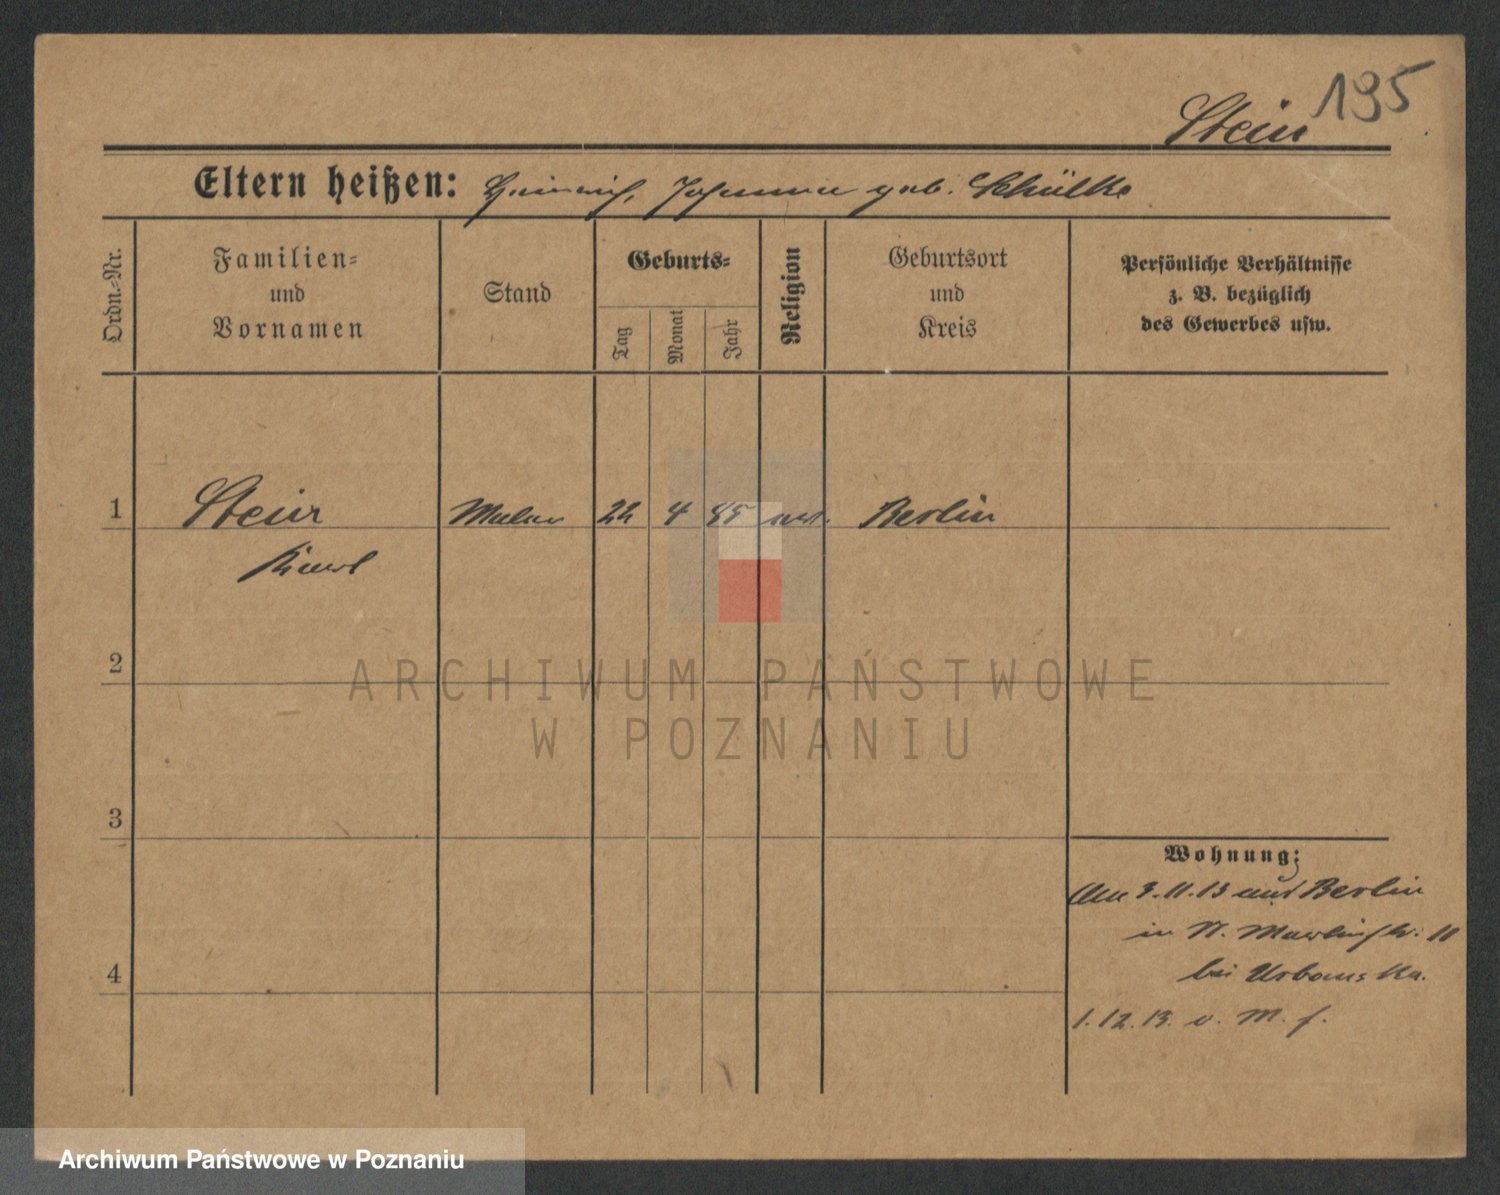 195
Stein
Eltern heißen: Heinrich, Johanna geb. Schülke
Ordn.-Nr.
Familien-
und
Vornamen
Stand
Geburts-
Tag
Monat
Jahr
Religion
Geburtsort
und
Kreis
Persönliche Verhältnisse
z. B. bezüglich
des Gewerbes usw.
1 Stein Maler 22 4 85 ev. Berlin
Karl
2
ARCHIWUM PAŃSTWOWE
W POZNANIU
3
Wohnung:
Am 3.11.13 aus Berlin
in N. Martinstr. 10
bei Urbanska.
4
1.12.13. v. M. f.
Archiwum Państwowe w Poznaniu